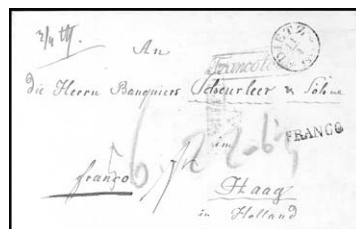 An
DIETZ
die Herrn Banquiers Scheurleer & Söhne
FRANCO
im
franco
Haag
in Holland